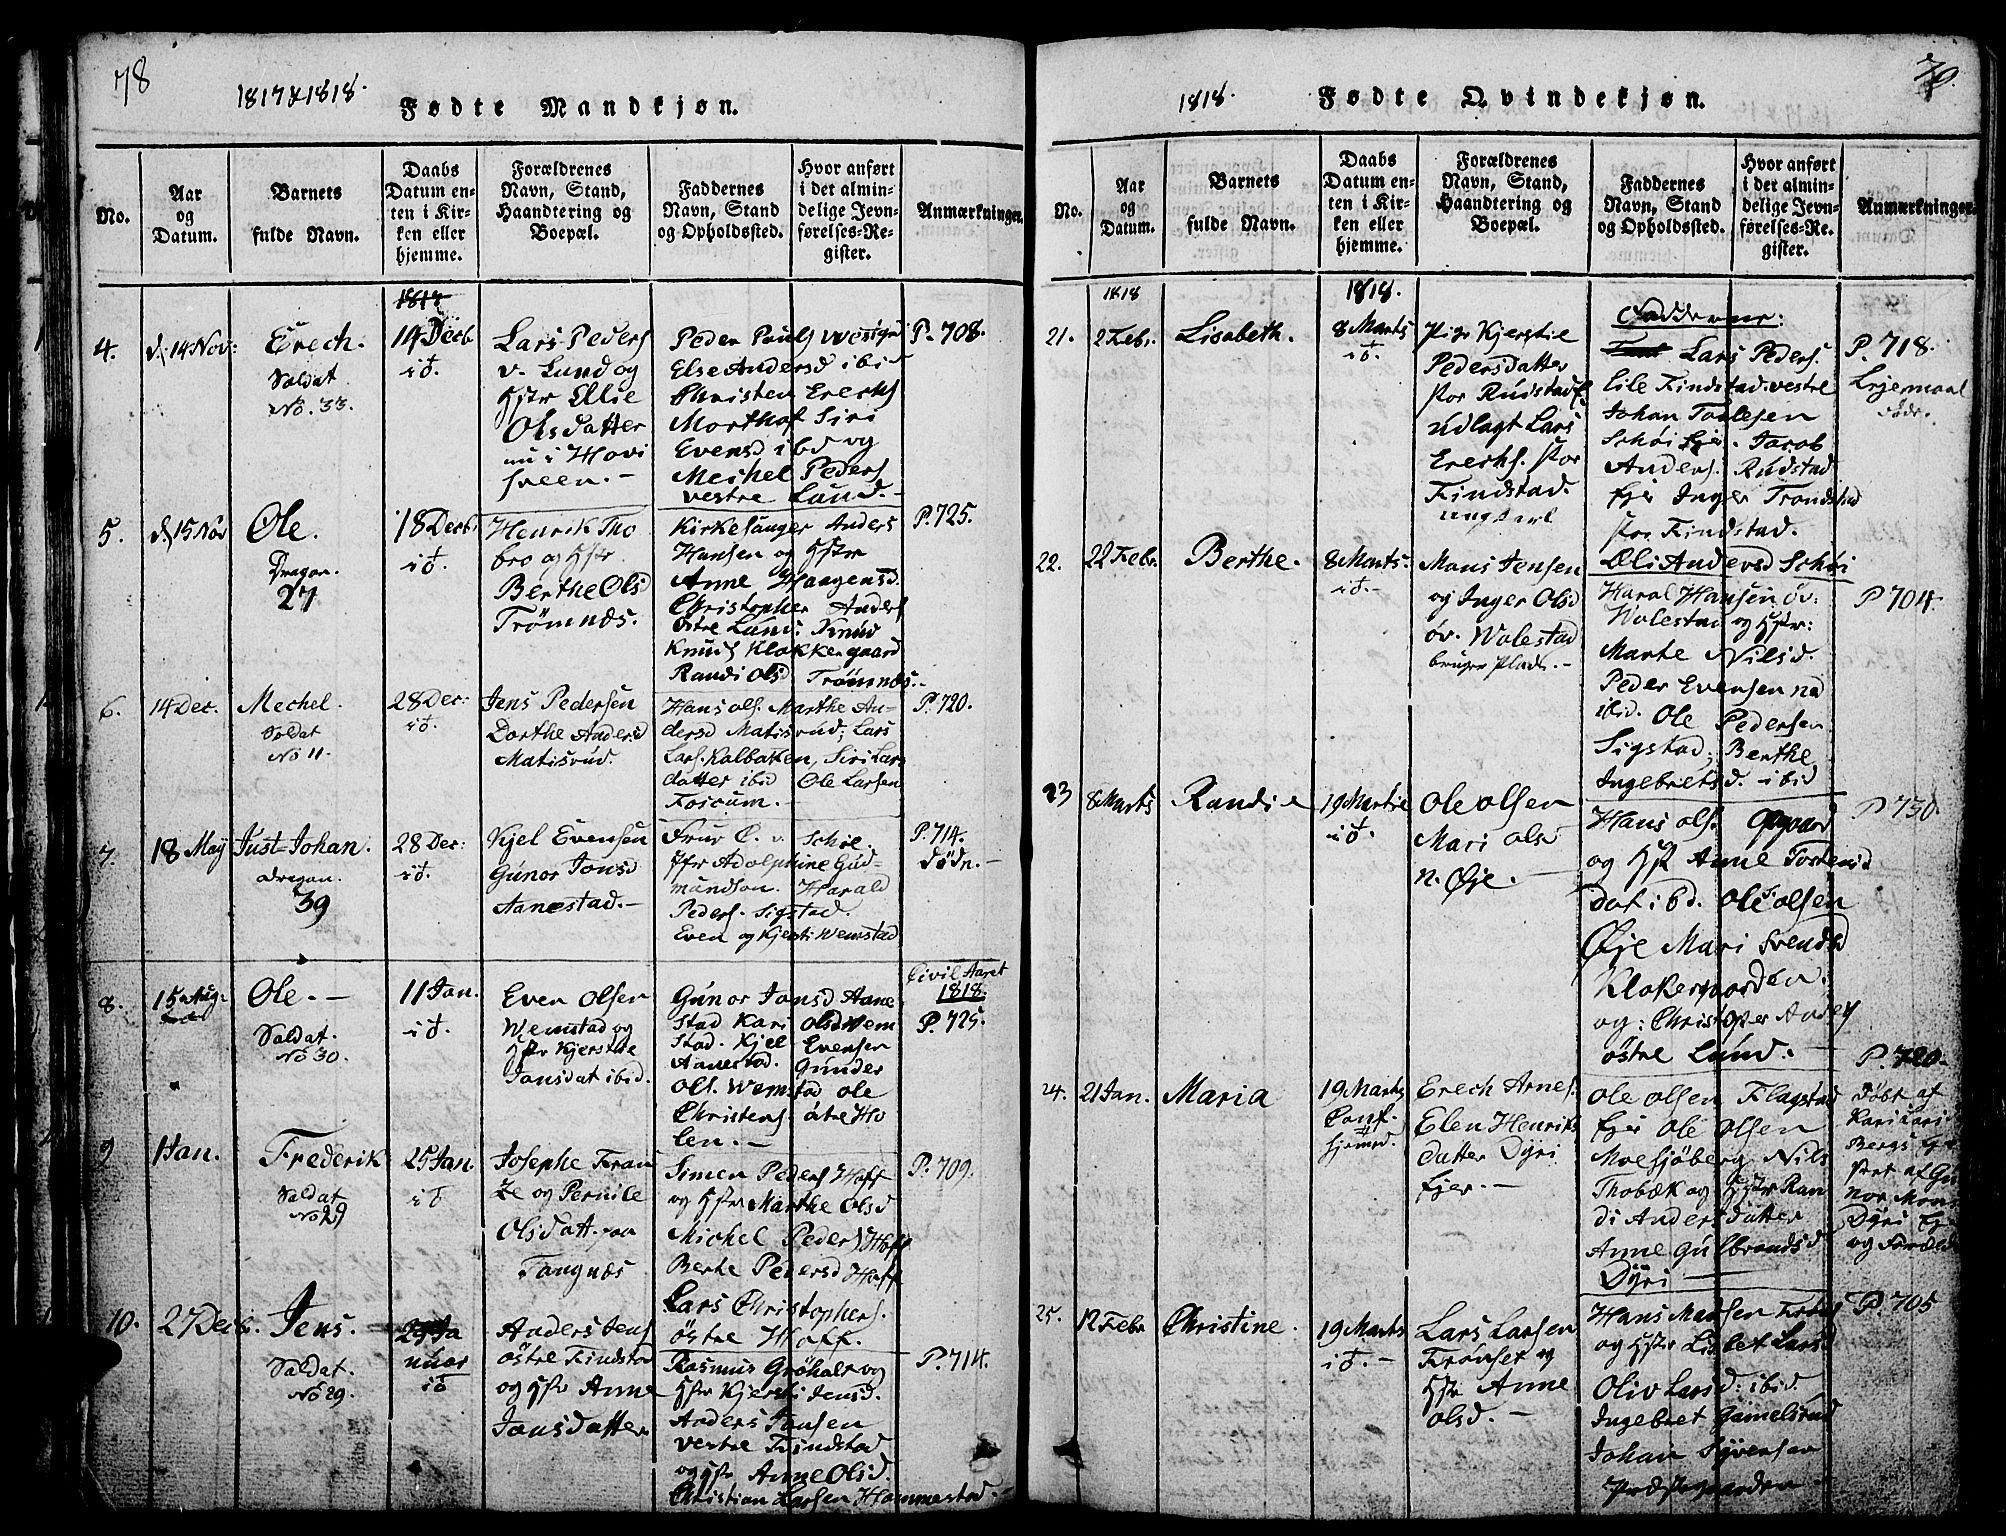 78
1817 & 1818.
Fødte Mandkjøn.
No.
Aar
og
Datum.
Barnets
fulde Navn.
Daabs
Datum en-
ten i Kir-
ken eller
hjemme.
Forældrenes
Navn, Stand,
Haandtering og
Boepæl.
Faddernes
Navn, Stand
og Opholdssted.
Hvor anført
i det almin-
delige Jevn-
førelses-Re-
gister.
Anmærkninger.
4.
d. 14 Nov:
Erech.
Soldat
No. 33.
1817
14 Decb
Lars Peders
v. Lund og
Hstr Ellie
Olsdatter
nu i Hovi
sveen. -
Peder Pauls
Else Andersd ibid
Christen Erechs
Morthof Siri
Evensd ibd og
Mechel Peders
vestre Lund. -
P. 708.
5.
d. 15 Nov
Ole.
Dragon.
27
18 Decb.
Henrik Tho
bro og Hstr
Berthe Olsd
Trömnæs.
Kirkesanger Anders
Hansen og Hstr
Anne Haagensd.
Christopher Anders
östre Lund. Knud
Knuds Klokkergaard
Randi Olsd Trömnæs. -
P. 725.
6.
14 Dec.
Mechel.
Soldat
No 11.
28 Dec:
Jens Pedersen
Dorthe Andersd
Matisrud.
Hans ols. Marthe An-
dersd Matisrud; Lars
Lars. Kalbatten, Siri Lars
datter ibid Ole Larsen
Foscum. -
P. 720.
7.
18 May
Just Johan.
dragon.
39
28 Dec:
Kjel Evensen
Gunor Jonsd
Aanestad. -
Frur C. v. Schöl.
Hstr Adolphine Gud-
mundson. Harald
Peders. Sigstad.
Even og Kjersti Wemstad
P. 714.
dödn. -
8.
15 Aug.
Ole. -
Soldat
No 30.
11 Jan.
Even Olsen
Wemstad og
Hstr Kjerstie
Jonsdat ibid.
Gunor Jonsd Aane
stad Kari Olsd Wem
stad. Kjel Evensen
Aanestad. Gunder
Ols. Wemstad ole
Christens. östre Ho
len. -
Civil Aaret
1818.
P. 725.
9
1 Jan.
Frederik
Soldat
No 29
25 Jan
Josephe Fran
ze og Pernile
Olsdatt. paa
Tangnæs
Simen Peders Hoff
og Hstr Marthe Olsd
Michel Peders Hoff
Berte Pedersd Hoff
Lars Christophers.
östre Hoff.
P. 709.
10.
27 Decb.
Jens.
Soldat.
No 29.
25 Ja
nuar
Anders Jens
östre Findstad
og Hstr Anne
Jonsdatter
Rasmus Gröhalt og
Hstr Kjersti Jensd.
Anders Jonsen
vestre Findstad
og Hstr Anne Olsd.
Christian Larsen Hommestad. -
P. 714.
79.
1818.
Fødte Qvindekjøn.
No.
Aar
og
Datum.
Barnets
fulde Navn.
Daabs
Datum en-
ten i Kir-
ken eller
hjemme.
Forældrenes
Navn, Stand,
Haandtering og
Boepæl.
Faddernes
Navn, Stand
og Opholdssted.
Hvor anført
i der almin-
delige Jevn-
førelses-Re-
gister.
Anmærkninger.
1818
21.
2 Febr.
Lisabeth.
1818.
8 Marts
Pige Kjerstie
Pedersdatter
stor Rudstad
Udlagt Lars
Erechs. stor
Findstad.
ungkarl
Fadderne:
Lars Peders.
lile Findstad vestre
Johan Tollesen
Schöi Ejer. Jacob
Anders. Rudstad
Ejer Inger Trondstad
stor Findstad.
Oli Andersd Schöi
P. 718.
Lejermaal
22.
22 Febr.
Berthe.
8 Marts.
Mons Jensen
og Inger Olsd
öv. Wolestad
bruger Plads. -
Haral Hansen öv:
Wolestad og Hstr:
Marte Nilsd.
Peder Evensen ne
ibid. Ole Pedersen
Sigstad; Berthe
Ingebrietsd. ibid
P 704.
23
8 Marts
Randie
19 Martie
Ole Olsen
Mari Olsd
n. Öje. -
Hans ols. Opgaard
og Hst Anne Tostensd
dat ibd. Ole Olsen
Öje Mari Svendsd
Klokergaarden.
og: Christopher Anders
östre Lund. -
P 730.
24.
21 Jan.
Maria
19 Marts
Conf.
hjemed.
Erech Arnes.
Elen Henriks
datter Dÿri
Ejer. -
Ole Olsen Flagstad
Ejer Ole Olsen
Moesjöberg Nils
Thobæk og Hstr Ran
di Andersdatter
Anne Gulbrandsd
Dÿri
P. 720.
Föbt af
Kari Lari
Bergs Ej
stet af Gu
nor Mon
Dÿri Ej
og Foræld
25.
12 Febr
Christine.
19 Marts
Lars Larsen
Frönset og
Hstr Anne
Olsd. -
Hans Madsen
og Hstr Lisbet Larsd
Oliv Larsd: ibid.
Ingebret Gamelsrud
Johan Syvensen
Præstegaarden
P. 705